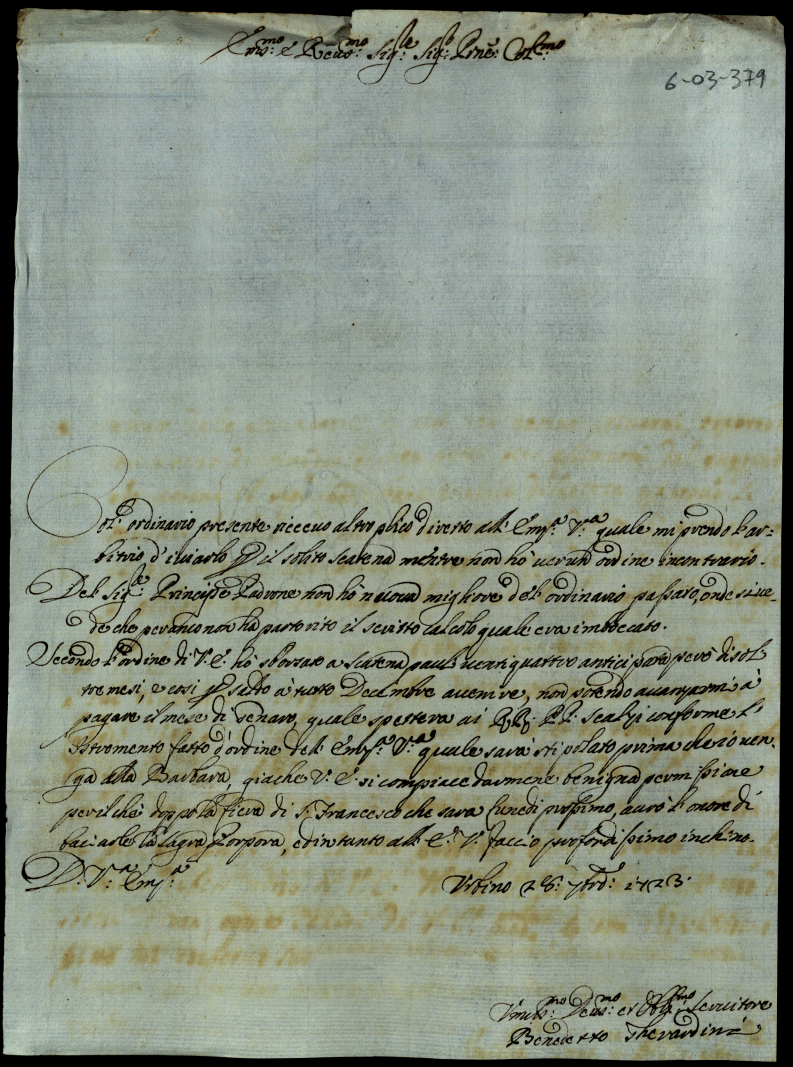 Em.mo e Reu.mo Sig.re Sig.r Prne. Col.mo
6-03-379
Coll'ordinario presente riceuo altro plico diretto all' Em.a V.a quale mi prendo l'ar-
bitrio d'inviarlo p il solito Scatena mentre non hò uerun ordine incontrario.
Del Sig.re Principe Padrone non hò nuoua migliore dell' ordinario passato, onde si ue-
de che peranco non ha partorito il scritto calcolo quale era imboccato.
Secondo l'ordine di V. E. hò sborsato a Scatena paoli uenti quattro anticipata però di sol
tre mesi, e così p tutto Decembre auenire, non potendo auanzarmi à
pagare il mese di Genaro, quale spettera ai RR. PP. Scalzi conforme l'
Istromento fatto d'ordine dell' Em.a V.a quale sarà stipolato prima che io uen-
ga alla Barbara, giache V. E. si compiace darmene benigna permissione
per il che doppo la fiera di S. Francesco che sara Lunedi prossimo, aurò l'onore di
baciarle la Sagra Porpora, ed in tanto all' E. V. faccio profondissimo inchino.
D. V.a Em.a
Urbino 28. 7bre. 1723.
Umil.mo Deuo.mo et Obl.mo Seruitore
Benedetto Gherardini